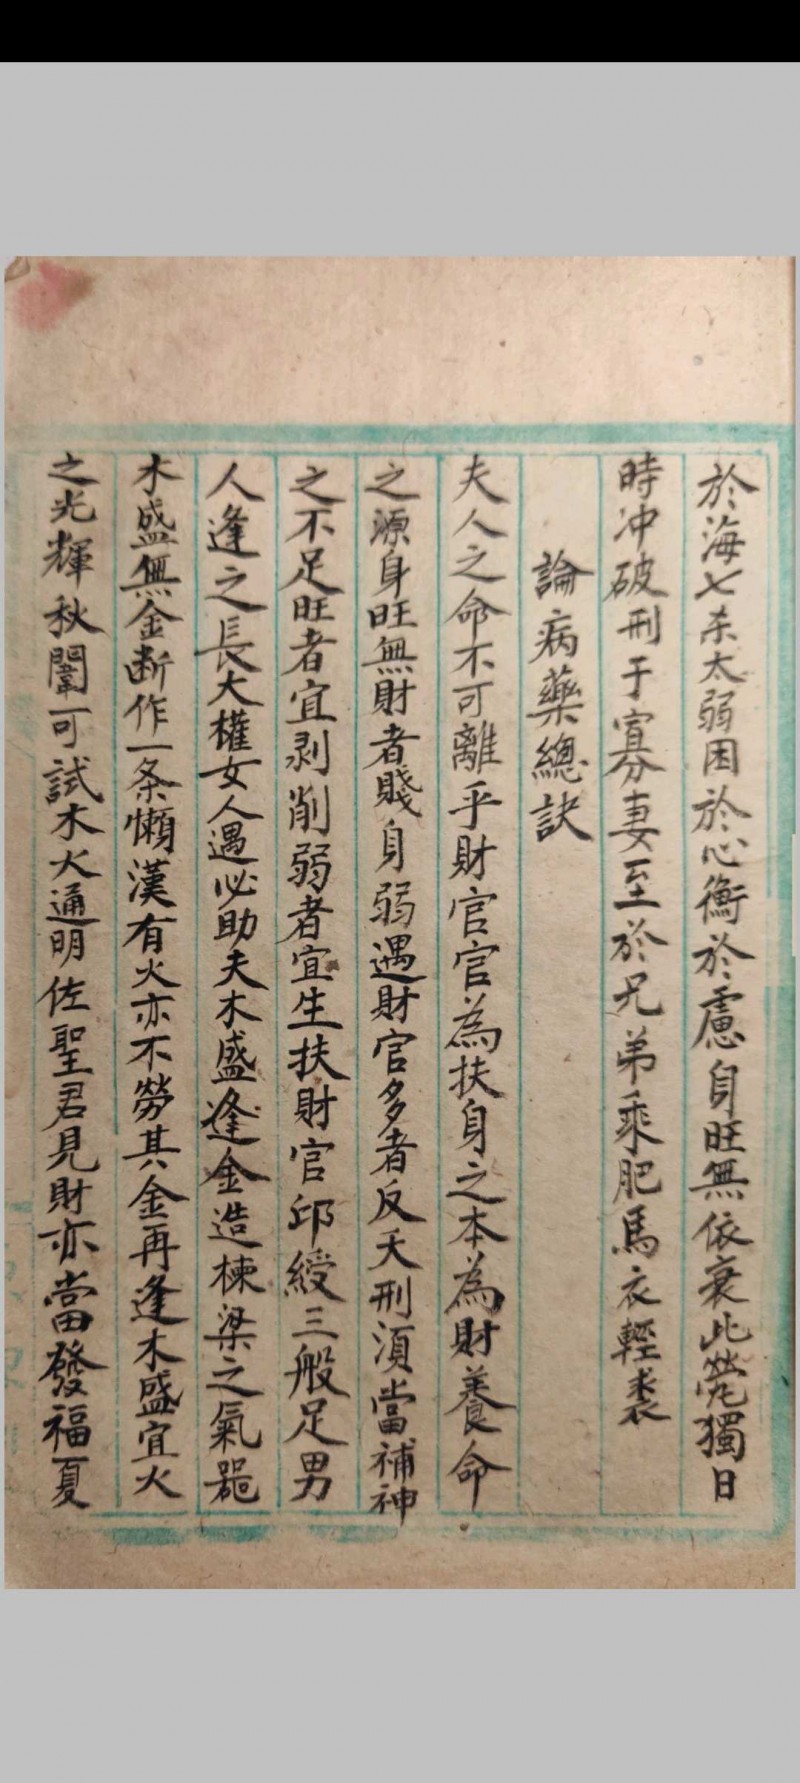 於海七杀太弱困於心衡於慮身旺無依衰此煢獨日
時冲破刑于寡妻至於兄弟乘肥馬衣輕裘
論病藥總訣
夫人之命不可離乎財官官為扶身之本為財養命
之源身旺無財者賤身弱遇財官多者反夭刑湏當補神
之不足旺者宜剥削弱者宜生扶財官邱綬三般足男
人逢之長大權女人遇必助夫木盛逢金造楝梁之氣噐
木盛無金断作一条懒漢有火亦不勞其金再逢木盛宜火
之光輝秋闈可試木火通明佐聖君見財亦當發福夏